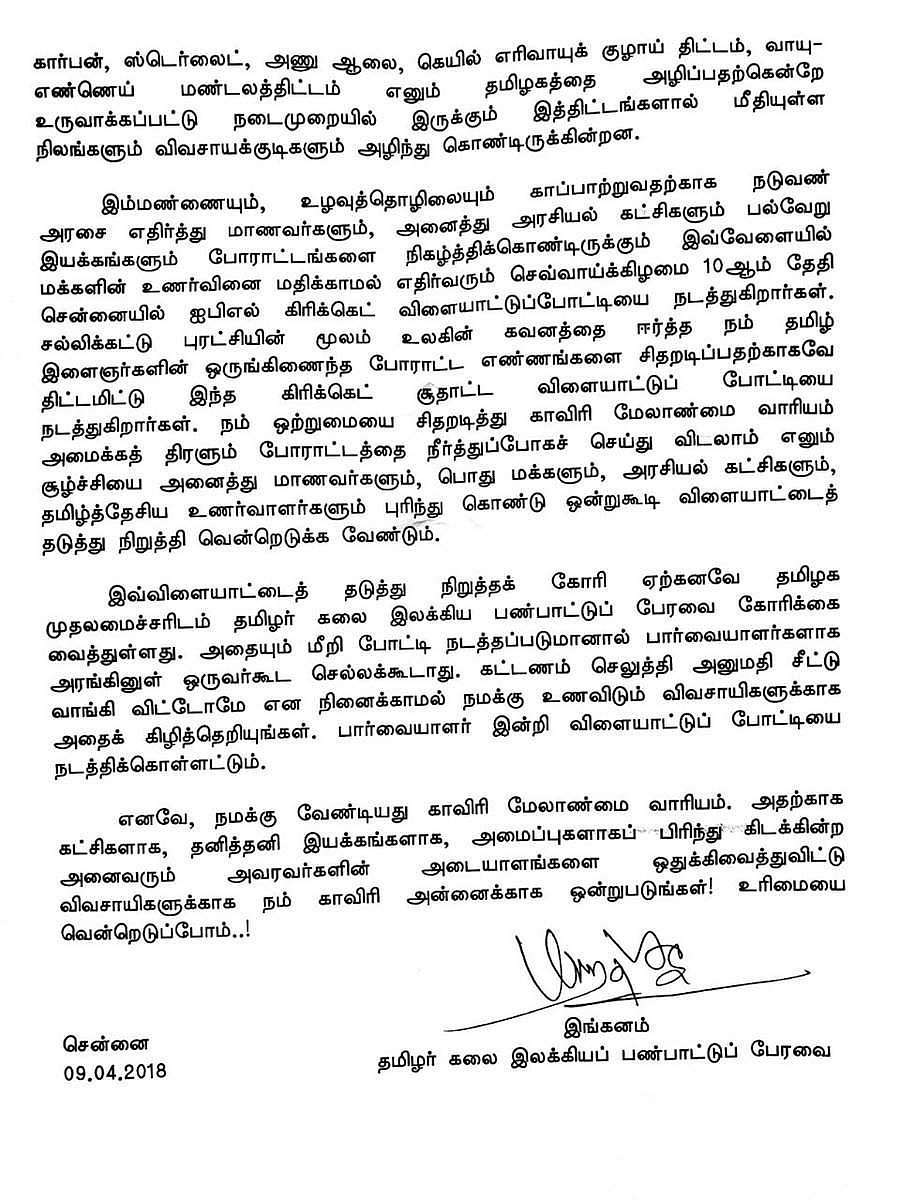 கார்பன், ஸ்டெர்லைட், அணு ஆலை, கெயில் எரிவாயுக் குழாய் திட்டம், வாயு-
எண்ணெய் மண்டலத்திட்டம் எனும் தமிழகத்தை அழிப்பதற்கென்றே
உருவாக்கப்பட்டு நடைமுறையில் இருக்கும் இத்திட்டங்களால் மீதியுள்ள
நிலங்களும் விவசாயக்குடிகளும் அழிந்து கொண்டிருக்கின்றன.
இம்மண்ணையும், உழவுத்தொழிலையும் காப்பாற்றுவதற்காக நடுவண்
அரசை எதிர்த்து மாணவர்களும், அனைத்து அரசியல் கட்சிகளும் பல்வேறு
இயக்கங்களும் போராட்டங்களை நிகழ்த்திக்கொண்டிருக்கும் இவ்வேளையில்
மக்களின் உணர்வினை மதிக்காமல் எதிர்வரும் செவ்வாய்க்கிழமை 10ஆம் தேதி
சென்னையில் ஐபிஎல் கிரிக்கெட் விளையாட்டுப்போட்டியை நடத்துகிறார்கள்.
சல்லிக்கட்டு புரட்சியின் மூலம் உலகின் கவனத்தை ஈர்த்த நம் தமிழ்
இளைஞர்களின் ஒருங்கிணைந்த போராட்ட எண்ணங்களை சிதறடிப்பதற்காகவே
திட்டமிட்டு இந்த கிரிக்கெட் சூதாட்ட விளையாட்டுப் போட்டியை
நடத்துகிறார்கள். நம் ஒற்றுமையை சிதறடித்து காவிரி மேலாண்மை வாரியம்
அமைக்கத் திரளும் போராட்டத்தை நீர்த்துப்போகச் செய்து விடலாம் எனும்
சூழ்ச்சியை அனைத்து மாணவர்களும், பொது மக்களும், அரசியல் கட்சிகளும்,
தமிழ்த்தேசிய உணர்வாளர்களும் புரிந்து கொண்டு ஒன்றுகூடி விளையாட்டைத்
தடுத்து நிறுத்தி வென்றெடுக்க வேண்டும்.
இவ்விளையாட்டைத் தடுத்து நிறுத்தக் கோரி ஏற்கனவே தமிழக
முதலமைச்சரிடம் தமிழர் கலை இலக்கிய பண்பாட்டுப் பேரவை கோரிக்கை
வைத்துள்ளது. அதையும் மீறி போட்டி நடத்தப்படுமானால் பார்வையாளர்களாக
அரங்கினுள் ஒருவர்கூட செல்லக்கூடாது. கட்டணம் செலுத்தி அனுமதி சீட்டு
வாங்கி விட்டோமே என நினைக்காமல் நமக்கு உணவிடும் விவசாயிகளுக்காக
அதைக் கிழித்தெறியுங்கள். பார்வையாளர் இன்றி விளையாட்டுப் போட்டியை
நடத்திக்கொள்ளட்டும்.
எனவே, நமக்கு வேண்டியது காவிரி மேலாண்மை வாரியம். அதற்காக
கட்சிகளாக, தனித்தனி இயக்கங்களாக, அமைப்புகளாகப் பிரிந்து கிடக்கின்ற
அனைவரும் அவரவர்களின் அடையாளங்களை ஒதுக்கிவைத்துவிட்டு
விவசாயிகளுக்காக நம் காவிரி அன்னைக்காக ஒன்றுபடுங்கள்! உரிமையை
வென்றெடுப்போம்..!
இங்கனம்
சென்னை
தமிழர் கலை இலக்கியப் பண்பாட்டுப் பேரவை
09.04.2018